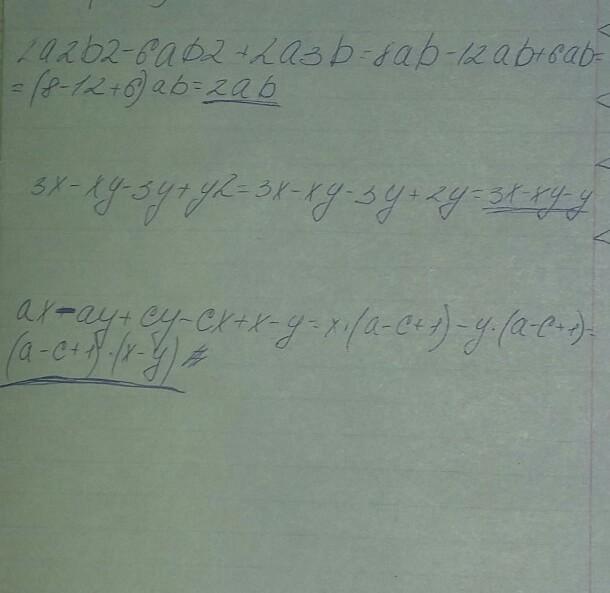 2a2b2-6ab2+2a3b=8ab-12ab+6ab=
=(8-12+6)ab=2ab
3x-xy-3y+y2=3x-xy-3y+2y=3x-xy-y
ax-ay+cy-cx+x-y=x·(a-c+1)-y·(a-c+1)=
(a-c+1)·(x-y)